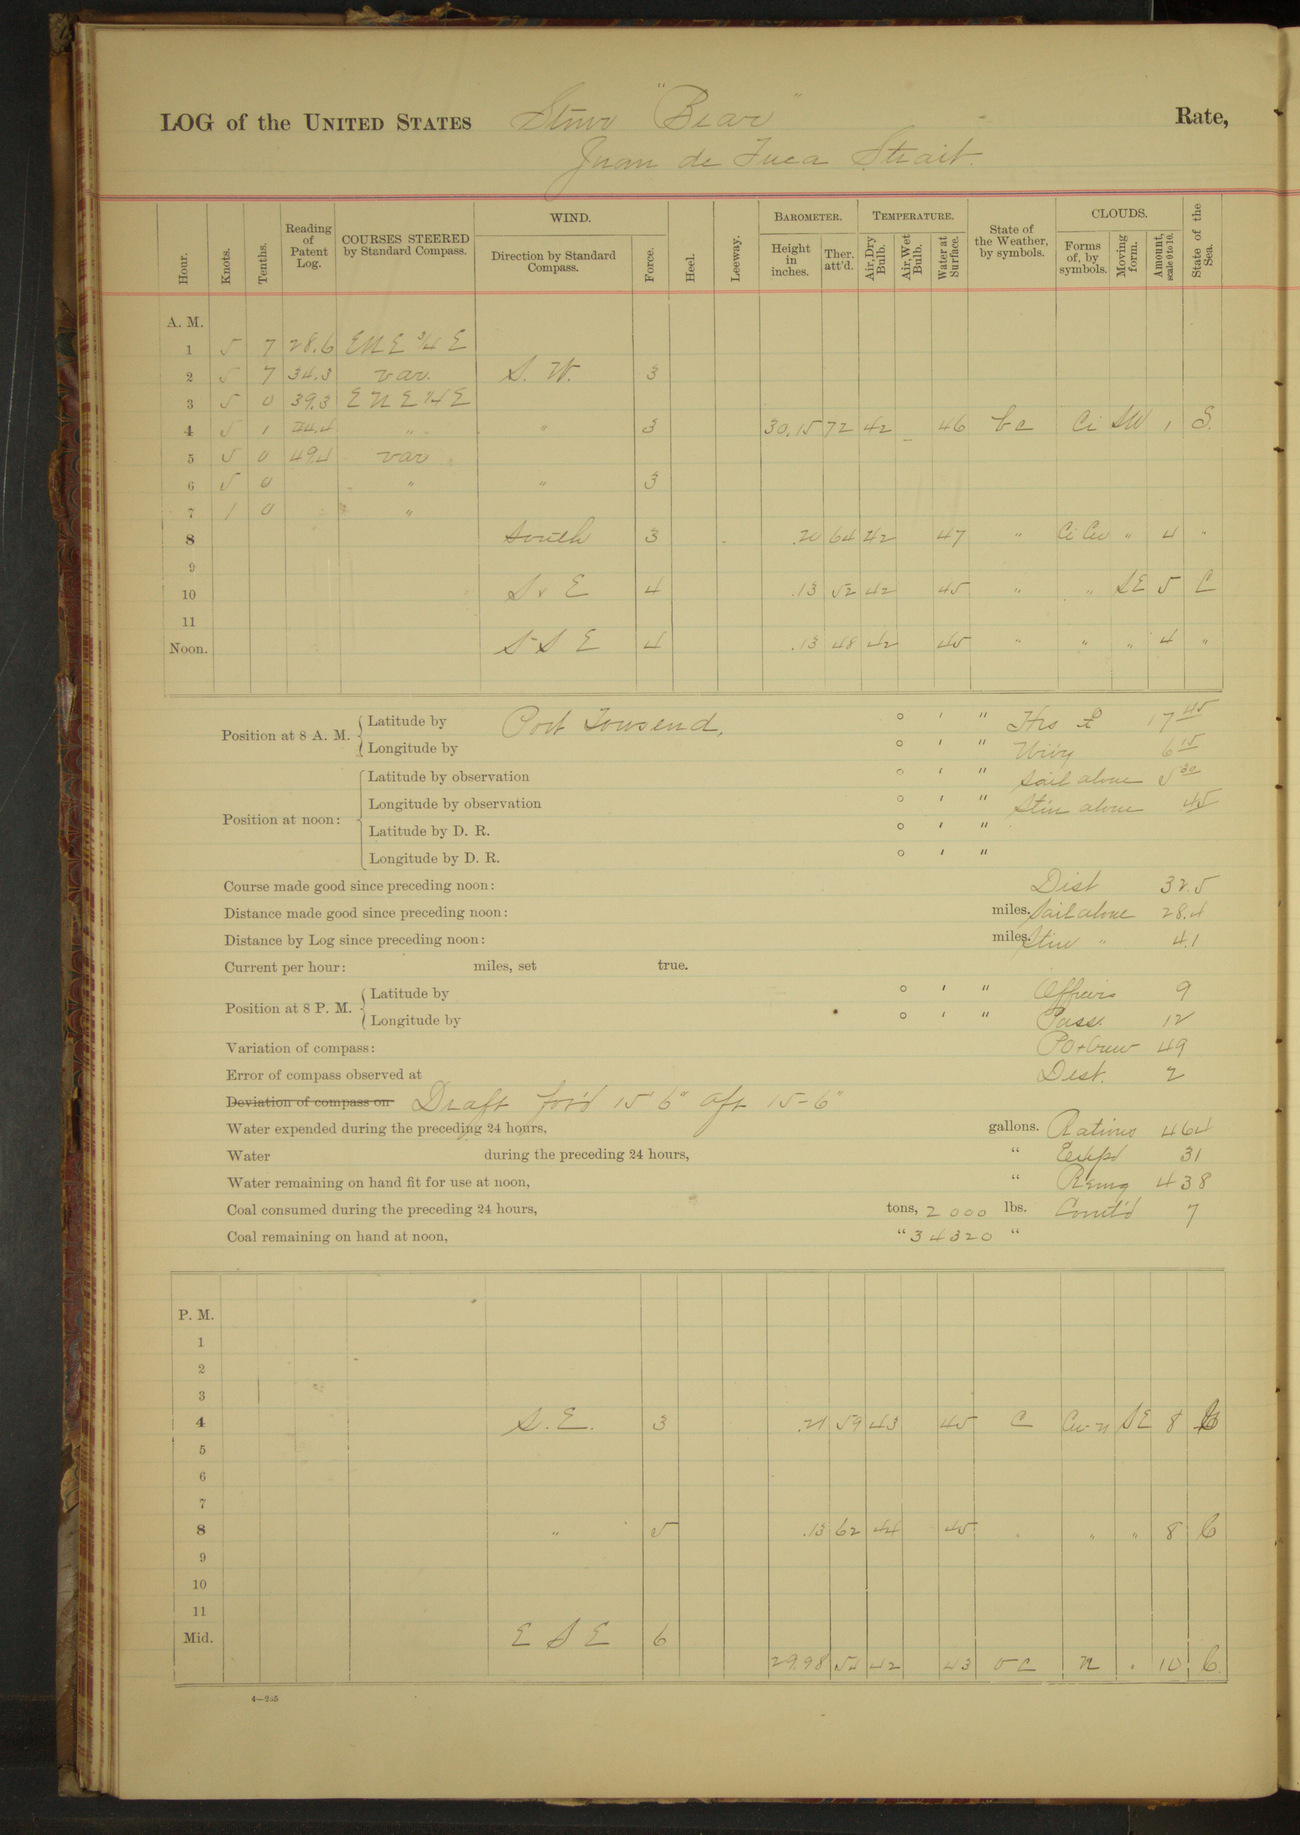 LOG of the UNITED STATES Stmr "Bear" Rate,
Juan de Fuca Strait.
Hour. Knots. Tenths. Reading of Patent Log. COURSES STEERED by Standard Compass. WIND. Direction by Standard Compass. Force. Heel. Leeway. BAROMETER. Height in inches. Ther. att'd. TEMPERATURE. Air, Dry Bulb. Air, Wet Bulb. Water at Surface. State of the Weather, by symbols. CLOUDS. Forms of, by symbols. Moving form. Amount, scale 0 to 10. State of the Sea.
A. M.
1 5 7 28.6 ENE 3/4 E
2 5 7 34.3 var. S. W. 3
3 5 0 39.3 ENE 1/4 E
4 5 1 44.4 " " 3 30.15 72 42 46 bc Ci SW 1 S.
5 5 0 49.4 var
6 5 0 " " 3
7 1 0 "
8 South 3 .20 64 42 47 " Ci Cu " 4 "
9
10 S x E 4 .13 52 42 45 " " SE 5 C
11
Noon. S S E 4 .13 48 42 45 " " " 4 "
Position at 8 A. M. Latitude by Port Townsend, ° ' " Hrs 17 45
Longitude by ° ' " 6 15
Position at noon: Latitude by observation ° ' " Sail alone 5 30
Longitude by observation ° ' " Stm alone 45
Latitude by D. R. ° ' "
Longitude by D. R. ° ' "
Course made good since preceding noon: Dist 32.5
Distance made good since preceding noon: miles. Sail alone 28.4
Distance by Log since preceding noon: miles. Stm " 4.1
Current per hour: miles, set true.
Position at 8 P. M. Latitude by ° ' " Officers 9
Longitude by ° ' " Pass. 12
Variation of compass: PO & Crew 49
Error of compass observed at Dest. 2
Deviation of compass on Draft for'd 15' 6" aft 15-6"
Water expended during the preceding 24 hours, gallons. Rations 464
Water during the preceding 24 hours, " Exp'd 31
Water remaining on hand fit for use at noon, " Remg 438
Coal consumed during the preceding 24 hours, tons, 2000 lbs. Comt'd 7
Coal remaining on hand at noon, " 34320 "
P. M.
1
2
3
4 S. E. 3 .21 59 43 45 C Cu-n SE 8
5
6
7
8 " 5 .13 62 44 45 " " " 8 C
9
10
11
Mid. E S E 6
29.98 54 42 43 oc n " 10 C
4—255